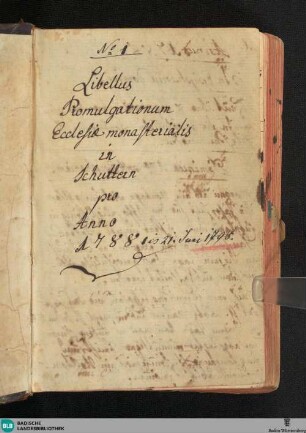 No. 1
Libellus
Promulgationum
Ecclesiæ monasterialis
in
Schuttern
pro
Anno
1788 bis 21. Juni 1796.
BLB BADISCHE
LANDESBIBLIOTHEK
Baden-Württemberg